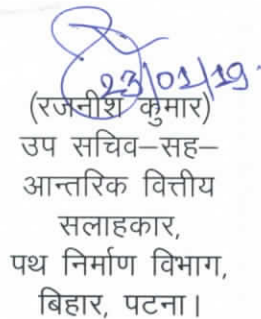 23/01/19
(रजनीश कुमार)
उप सचिव–सह–
आन्तरिक वित्तीय
सलाहकार,
पथ निर्माण विभाग,
बिहार, पटना।